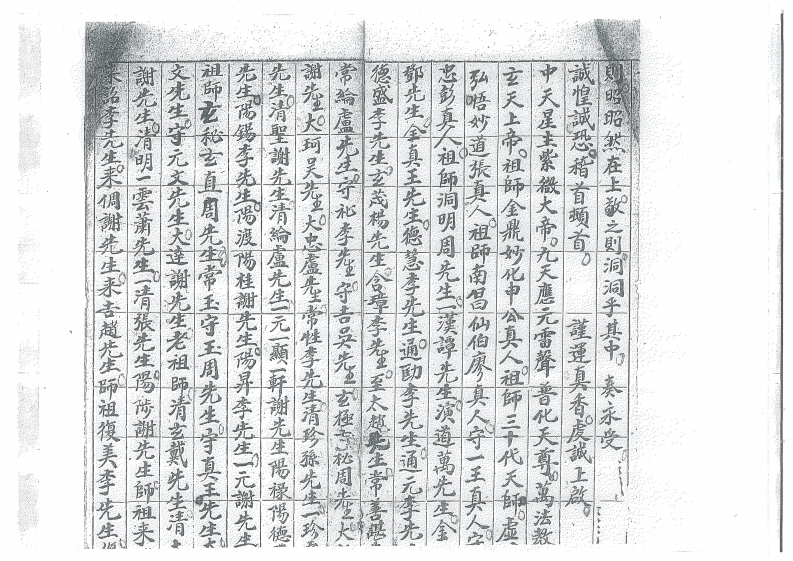 則昭昭然在上敬之則洞洞乎其中。奏永受
誠惶誠恐。稽首頓首。謹運真香虔誠上啟。
中天星主紫微大帝。九天應元雷聲普化天尊。萬法教
玄天上帝。祖師金鼎妙化申公真人。祖師三十代天師。虛
弘悟妙道張真人。祖師南昌仙伯廖真人。守一王真人。守
忠彭真人。祖師洞明周先生。漢譚先生。演道萬先生。金
鄧先生。全真王先生。德慧李先生。通勛李先生。通元李先
德盛李先生。玄茂楊先生。含璋李先生。至太趙先生。常善
常綸盧先生。守松李先生。守吉吳先生。玄極 松周先生。大
謝先生。大珂吳先生。大忠盧先生。常性李先生。清珍孫先生。一珍
先生。清聖謝先生。清綸盧先生。一元一顯一軒謝先生。陽祿陽德
先生。陽錫李先生。陽渡陽桂謝先生。陽昇李先生。一元謝先生
祖師玄秘玄直周先生。常玉守玉周先生。守真王先生。
文先生。守元文先生。大達謝先生。老祖師清玄戴先生。清
謝先生。清明一雲蕭先生。一清張先生。陽陟謝先生。師祖來
來詔李先生。來倜謝先生。來吉趙先生。師祖復美李先生。